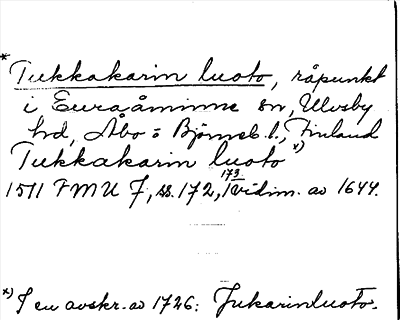 * Tukkakarin luoto, råpunkt
i Euraåminne sn, Ulvsby
hd, Åbo o Björneb. l., Finland
Tukkakarin luoto x)
1511 FMU 7, ss. 172, 173, vidim. av 1644.
x) I en avskr. av 1726: Jukarinluoto.